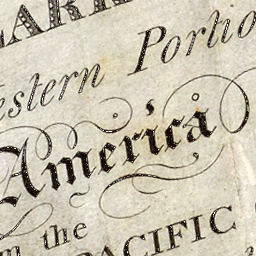 estern Portio
America
the
PACIFIC